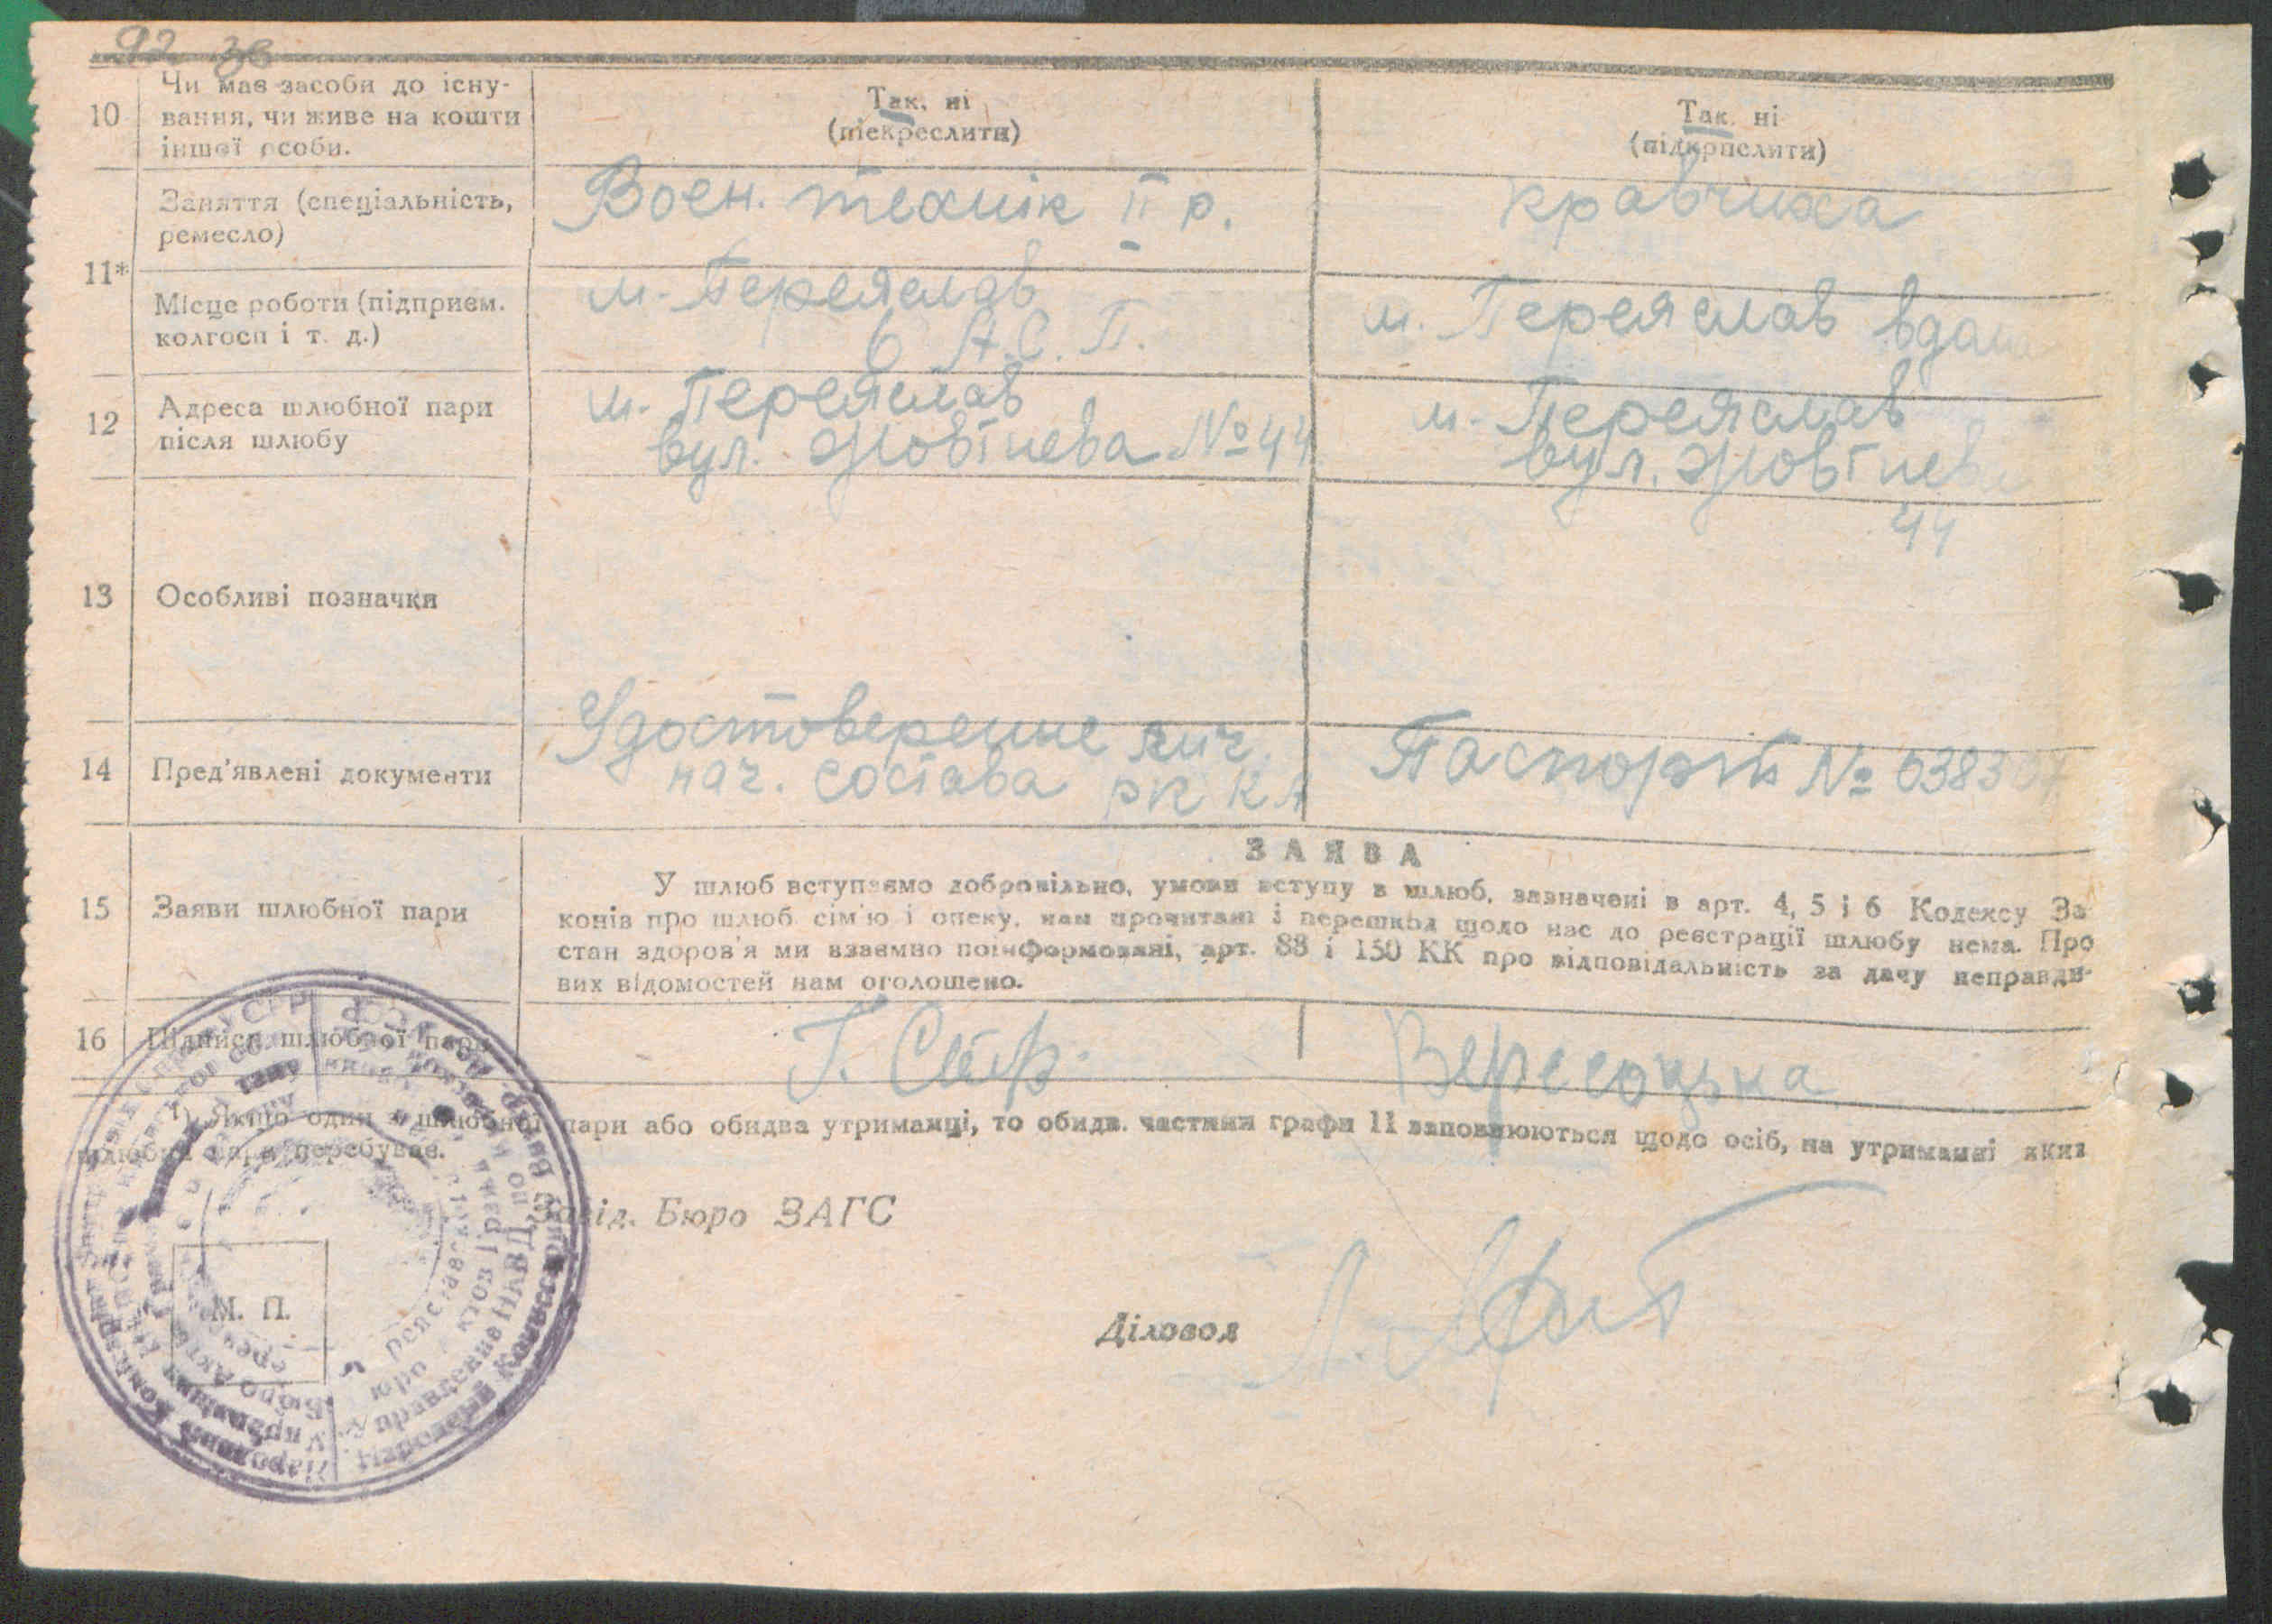 92 зв
10
Чи має засоби до існу-
вання, чи живе на кошти
іншої особи.
Так, ні
(піекреслити)
Так, ні
(підкрпслити)
11*
Заняття (спеціальність,
ремесло)
Воен. технік II р.
кравчиха
Місце роботи (підприєм.
колгосп і т. д.)
м. Переяслав
6 А.С.П.
м. Переяслав вдома
12
Адреса шлюбної пари
після шлюбу
м. Переяслав
вул. Жовтнева № 44
м. Переяслав
вул. Жовтнева
44
13
Особливі позначки
14
Пред'явлені документи
Удостоверение лич.
нач. состава РККА
Паспорт №
15
Заяви шлюбної пари
ЗАЯВА
У шлюб вступаємо добровільно, умови вступу в шлюб, зазначені в арт. 4, 5 і 6 Кодексу За
конів про шлюб сім'ю і опеку, нам прочитані і перешкод щодо нас до реєстрації шлюбу нема. Про
стан здоров'я ми взаємно поінформовані, арт. 88 і 150 КК про відповідальність за дачу неправди-
вих відомостей нам оголошено.
16
Підписи шлюбної пари
Вересоцька
1) Якщо один з шлюбної пари або обидва утриманці, то обидв. частини графи 11 заповнюються щодо осіб, на утриманні яких
шлюбна пара перебуває.
Завід. Бюро ЗАГС
М. П.
Діловод